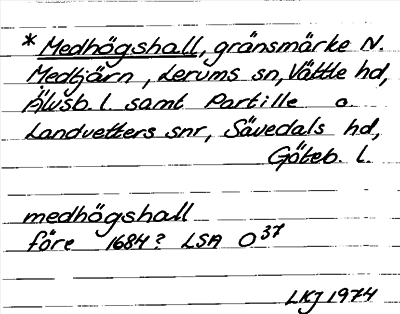 * Medhögshall, gränsmärke N.
Medtjärn, Lerums sn, Vättle hd,
Älvsb. l. samt Partille o.
Landvetters snr, Sävedals hd,
Göteb. l.
medhögshall
före 1684? LSA O 37
LKJ 1974